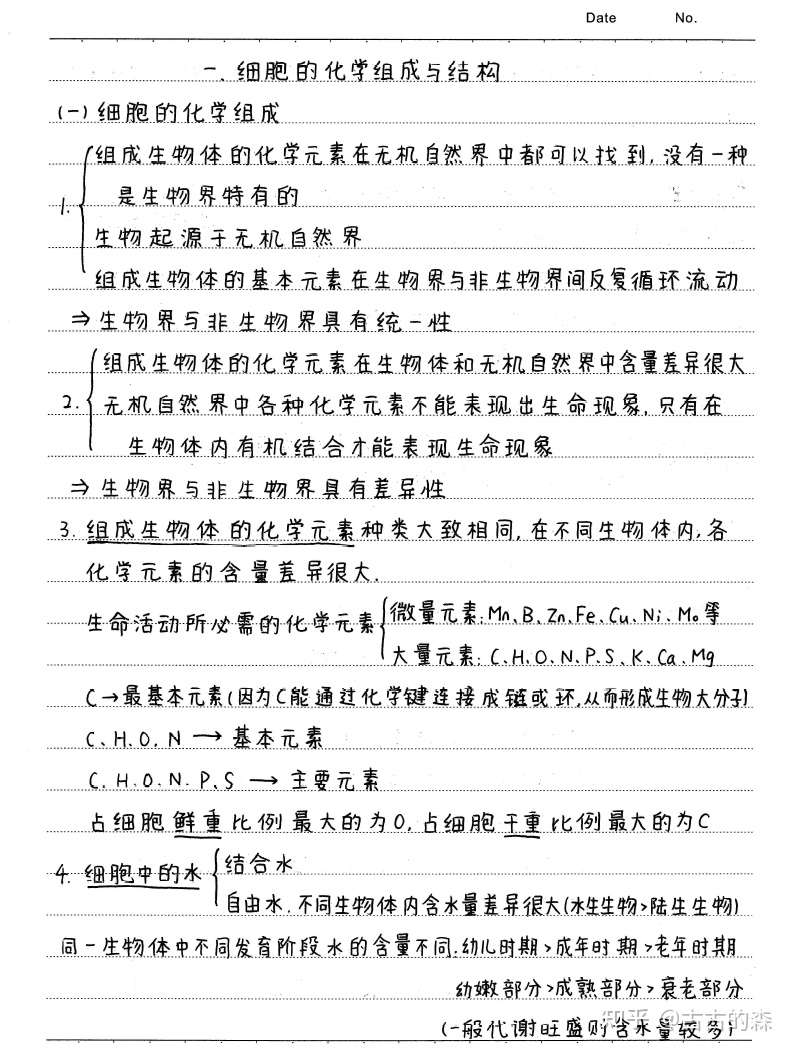 Date No.
一、细胞的化学组成与结构
(一) 细胞的化学组成
组成生物体的化学元素在无机自然界中都可以找到,没有一种
是生物界特有的
1.
生物起源于无机自然界
组成生物体的基本元素在生物界与非生物界间反复循环流动
⇒ 生物界与非生物界具有统一性
组成生物体的化学元素在生物体和无机自然界中含量差异很大
2. 无机自然界中各种化学元素不能表现出生命现象,只有在
生物体内有机结合才能表现生命现象
⇒ 生物界与非生物界具有差异性
3. 组成生物体的化学元素种类大致相同,在不同生物体内,各
化学元素的含量差异很大.
生命活动所必需的化学元素
微量元素:Mn、B、Zn、Fe、Cu、Ni、Mo等
大量元素:C、H、O、N、P、S、K、Ca、Mg
C→最基本元素(因为C能通过化学键连接成链或环,从而形成生物大分子)
C、H、O、N → 基本元素
C、H、O、N、P、S → 主要元素
占细胞鲜重比例最大的为O,占细胞干重比例最大的为C
4. 细胞中的水
结合水
自由水.不同生物体内含水量差异很大(水生生物>陆生生物)
同一生物体中不同发育阶段水的含量不同:幼儿时期>成年时期>老年时期
幼嫩部分>成熟部分>衰老部分
(一般代谢旺盛则含水量较多)
知乎 @古古的森